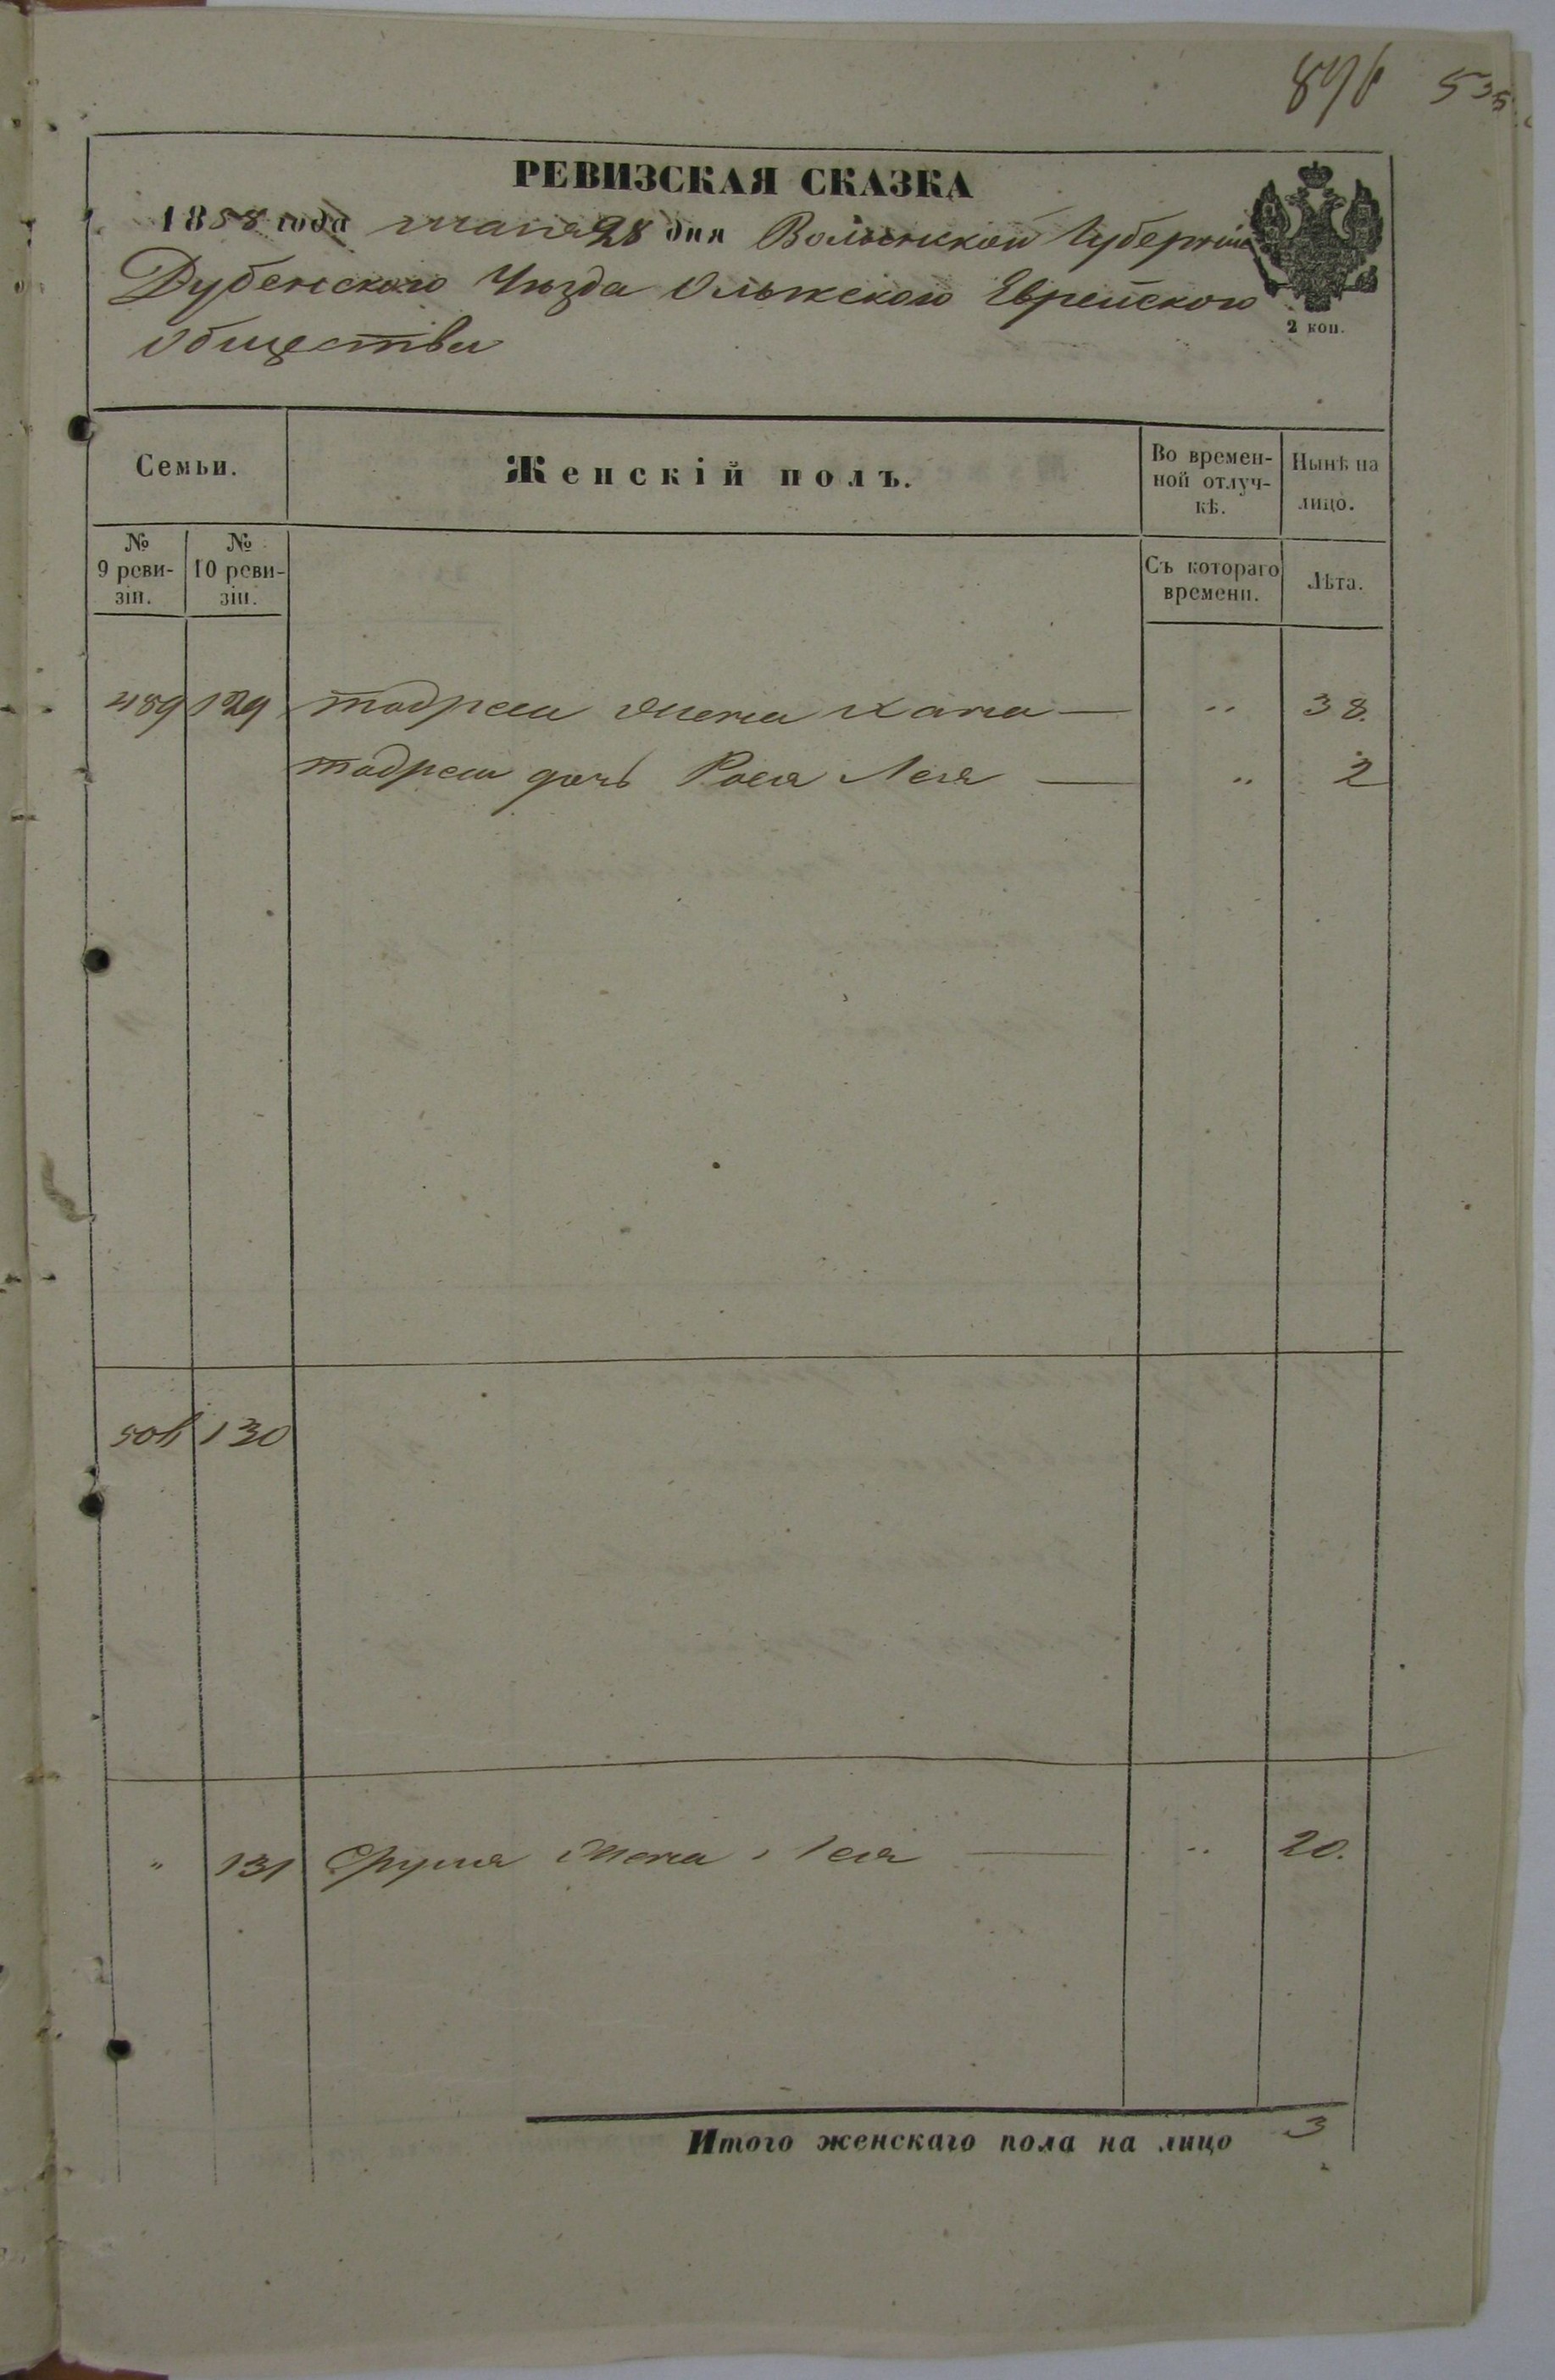 896 535
РЕВИЗСКАЯ СКАЗКА
1858 года мая 28 дня Волынской Губерніи
Дубенского Уезда Олыкского Еврейского
общества
2 коп.
Семьи.
Женскій полъ.
Во времен-
ной отлуч-
кѣ.
Нынѣ на
лицо.
№
9 реви-
зіи.
№
10 реви-
зіи.
Съ котораго
времени.
Лѣта.
489 129 тодреса жена хана — " 38.
тодреса дочь Рося Лея — " 2
501 130
" 131 Фрума жена Лея — " 20.
Итого женскаго пола на лицо 3